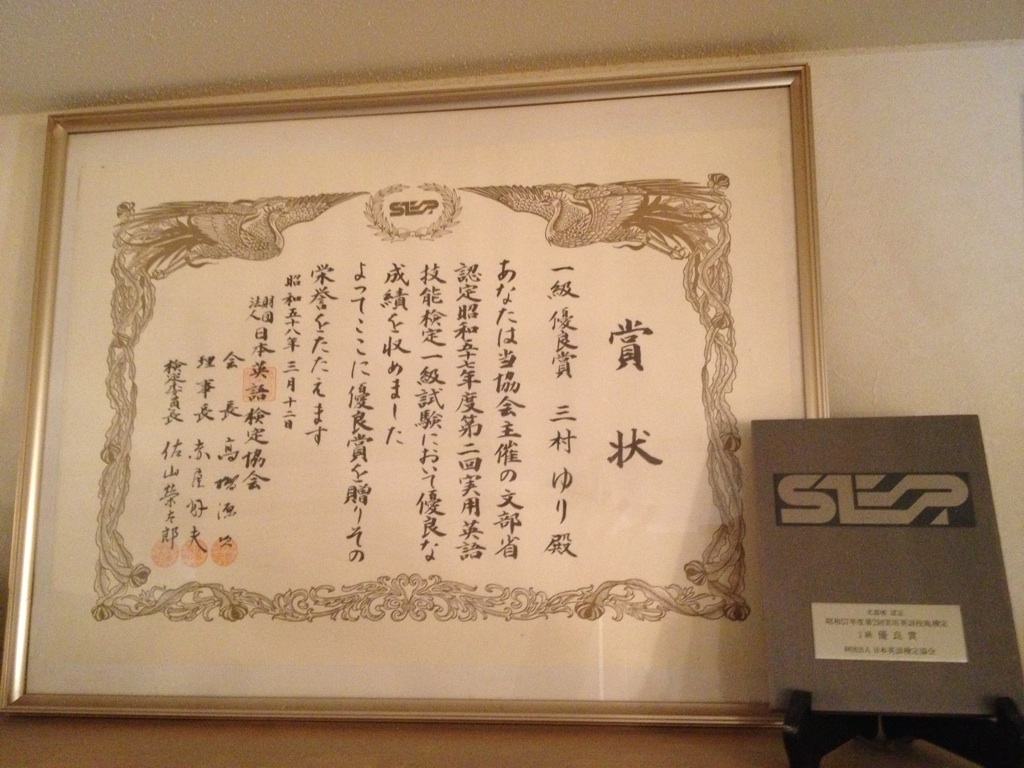 STEP
賞状
一級優良賞 三村ゆり殿
あなたは当協会主催の文部省
認定昭和五十七年度第二回実用英語
技能検定一級試験において優良な
成績を収めました
よってここに優良賞を贈りその
栄誉をたたえます
昭和五十八年三月十二日
財団法人 日本英語検定協会
会長 高橋源次
理事長 赤尾好夫
検定委員長 佐山栄太郎
STEP
文部省 認定
昭和57年度第2回実用英語技能検定
1級 優良賞
財団法人 日本英語検定協会